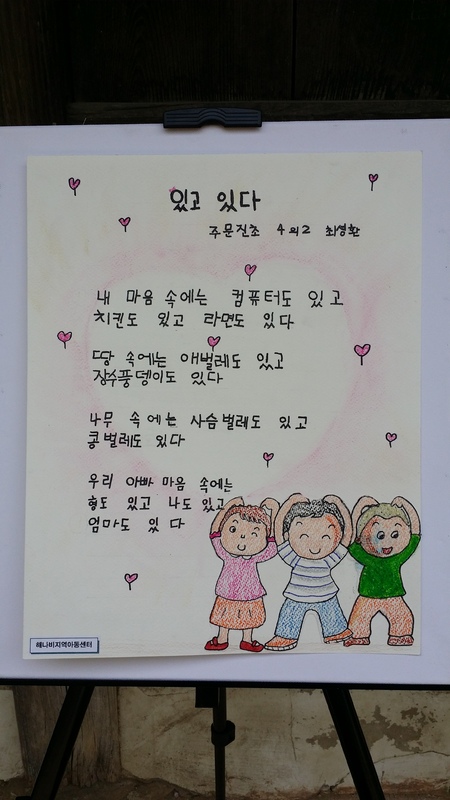 있고 있다
주문진초 4의2 최영환
내 마음 속에는 컴퓨터도 있고
치킨도 있고 라면도 있다
땅 속에는 애벌레도 있고
장수풍뎅이도 있다
나무 속에는 사슴벌레도 있고
콩벌레도 있다
우리 아빠 마음 속에는
형도 있고 나도 있고
엄마도 있다
해나비지역아동센터